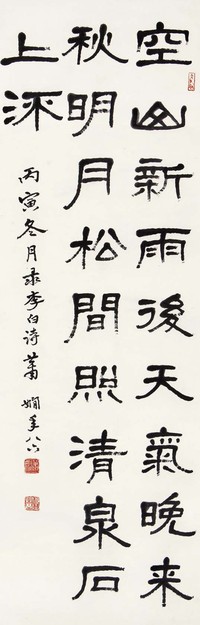 空山新雨後天氣晚來
秋明月松間照清泉石
上流
丙寅冬月录李白诗蕭嫻年八六